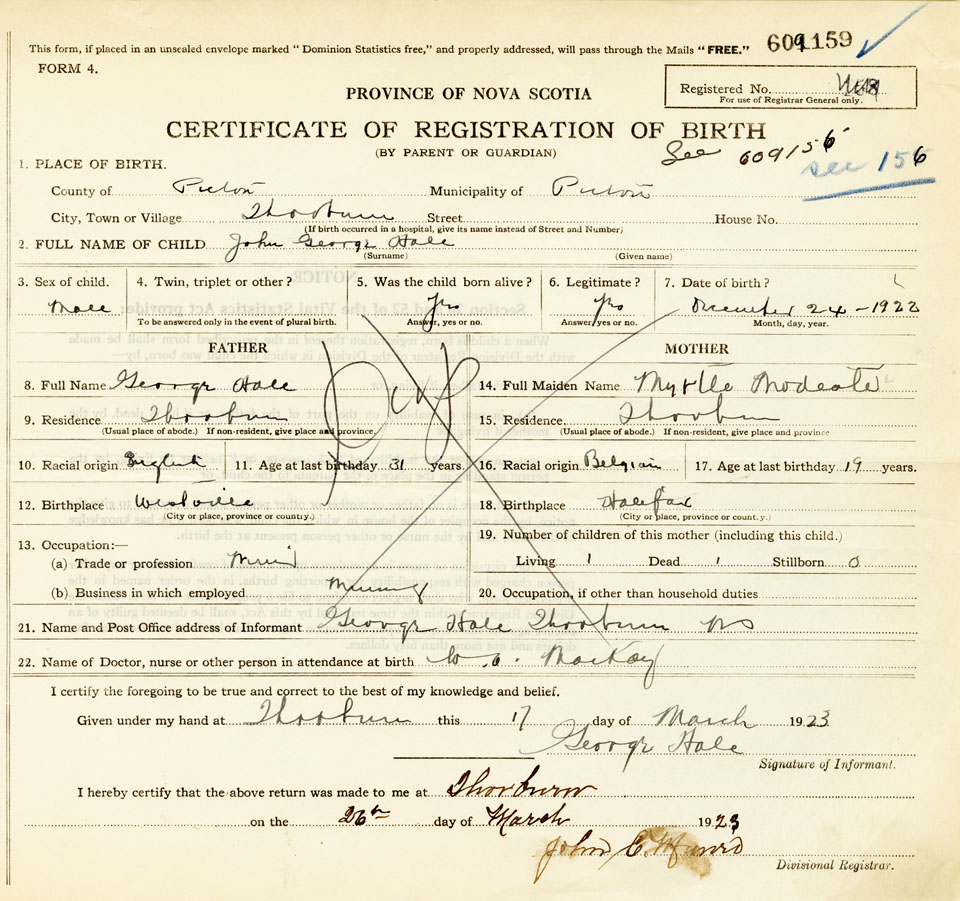 This form, if placed in an unsealed envelope marked "Dominion Statistics free," and properly addressed, will pass through the Mails "FREE." 609159
FORM 4.
Registered No.
For use of Registrar General only.
PROVINCE OF NOVA SCOTIA
CERTIFICATE OF REGISTRATION OF BIRTH
(BY PARENT OR GUARDIAN) See 609156 see 156
1. PLACE OF BIRTH.
County of Pictou Municipality of Pictou
City, Town or Village Thorburn Street House No.
(If birth occurred in a hospital, give its name instead of Street and Number)
2. FULL NAME OF CHILD John George Hale
(Surname) (Given name)
3. Sex of child. 4. Twin, triplet or other? 5. Was the child born alive? 6. Legitimate? 7. Date of birth?
Male Yes Yes December 24 - 1922
To be answered only in the event of plural birth. Answer, yes or no. Answer, yes or no. Month, day, year.
FATHER MOTHER
8. Full Name George Hale 14. Full Maiden Name Myrtle
9. Residence Thorburn 15. Residence Thorburn
(Usual place of abode.) If non-resident, give place and province. (Usual place of abode.) If non-resident, give place and province
10. Racial origin English 11. Age at last birthday 31 years. 16. Racial origin Belgian 17. Age at last birthday 19 years.
12. Birthplace Westville 18. Birthplace Halifax
(City or place, province or country.) (City or place, province or country.)
13. Occupation:— 19. Number of children of this mother (including this child.)
(a) Trade or profession Living 1 Dead 1 Stillborn 0
(b) Business in which employed Mining 20. Occupation, if other than household duties
21. Name and Post Office address of Informant George Hale Thorburn NS
22. Name of Doctor, nurse or other person in attendance at birth MacKay
I certify the foregoing to be true and correct to the best of my knowledge and belief.
Given under my hand at Thorburn this 17 day of March 1923
George Hale
Signature of Informant.
I hereby certify that the above return was made to me at Thorburn
on the 26th day of March 1923
John C. Munro
Divisional Registrar.